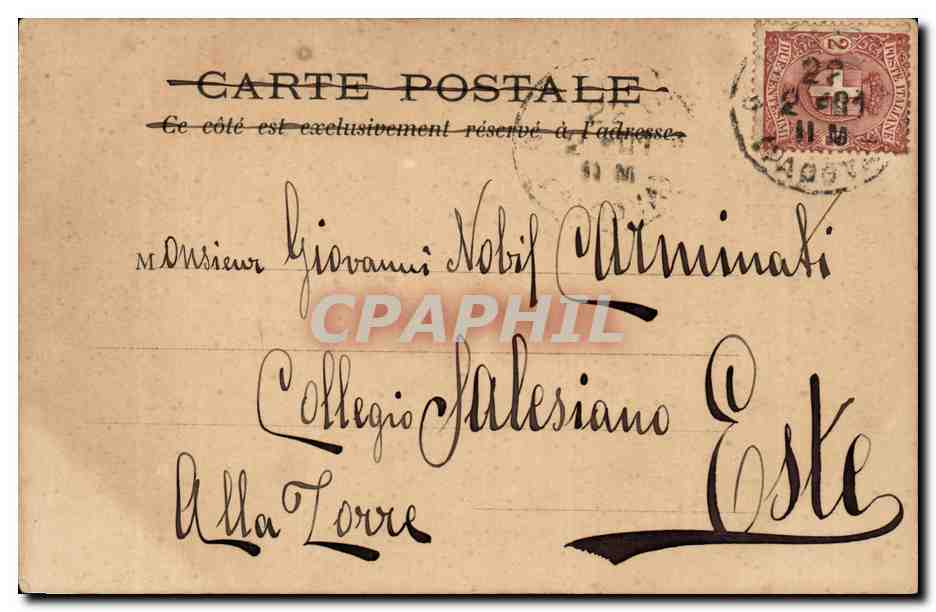 CARTE POSTALE
Ce côté est exclusivement réservé à l'adresse.
POSTE ITALIANE
2
11 M
PADOVA
11 M
Monsieur Giovanni Nobil Carminati
CPAPHIL
Collegio Salesiano
Este
Alla Torre